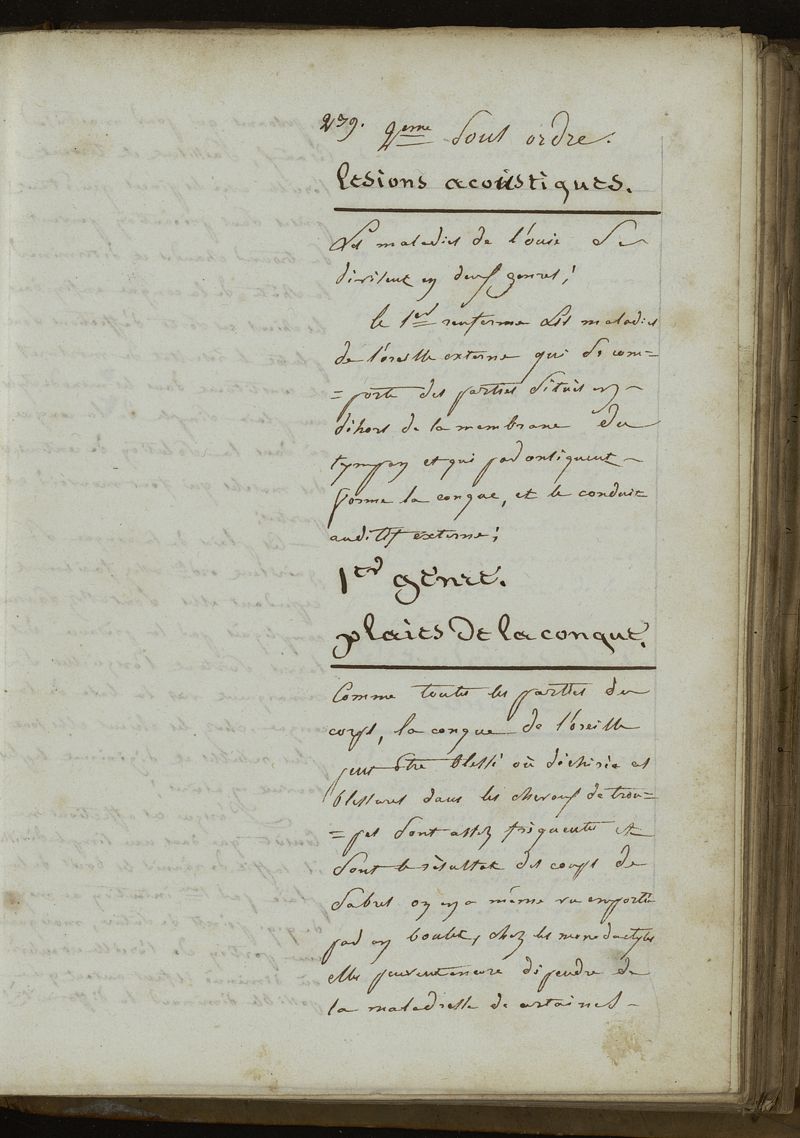 239. 2eme Sous ordre.
Lesions acoustiques.
Les maladies de l'ouie se
divisent en deux genres;
le 1er renferme les maladies
de l'oreille externe qui se com=
=porte des parties situés en
dehors de la membrane du
tympan et qui par
forme la conque, et le conduit
auditif externe;
1er genre.
plaies de la conque.
Comme toutes les parties du
corps, la conque de l'oreille
peut être blessé où déchirée
blessures dans les chevaux de trou=
=pes sont assez frequents et
sont le résultat des coups de
sabres on en a même vu emporté
par un boulet, chez les monodactyles
elles peuvent encore dépendre de
la maladresse de certaines